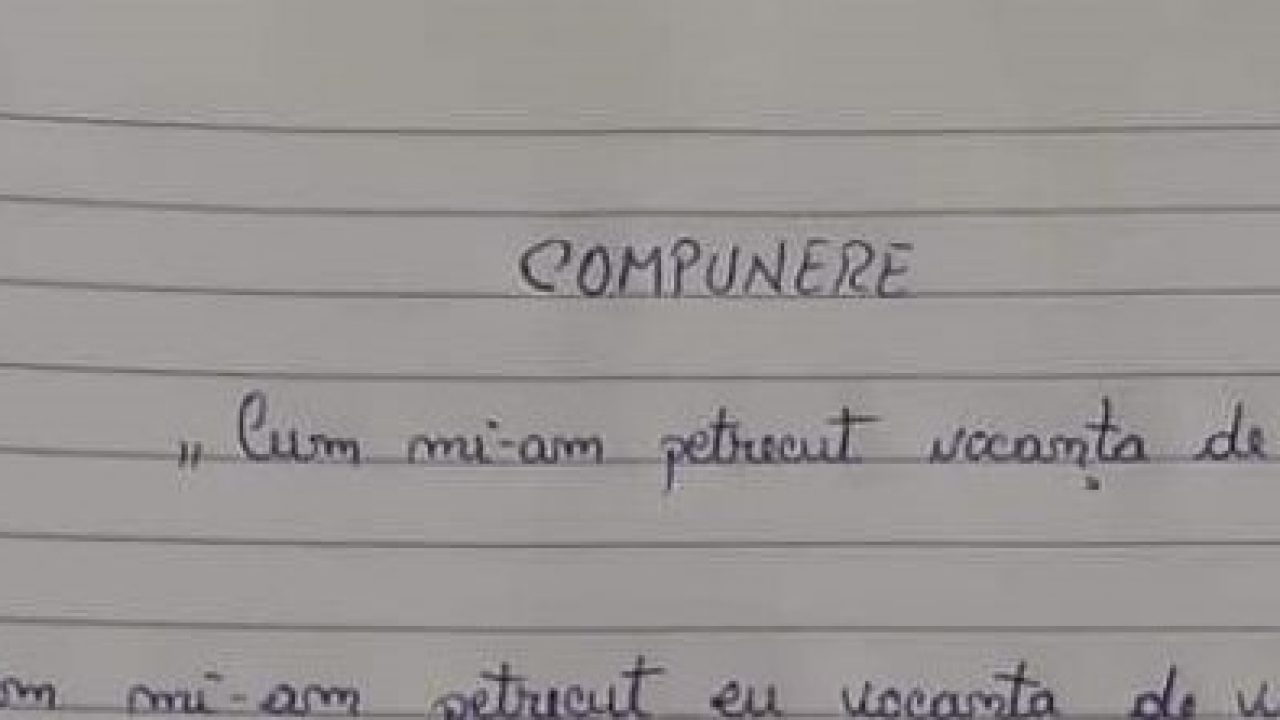 COMPUNERE
„Cum mi-am petrecut vacanța de
mi-am petrecut eu vacanța de